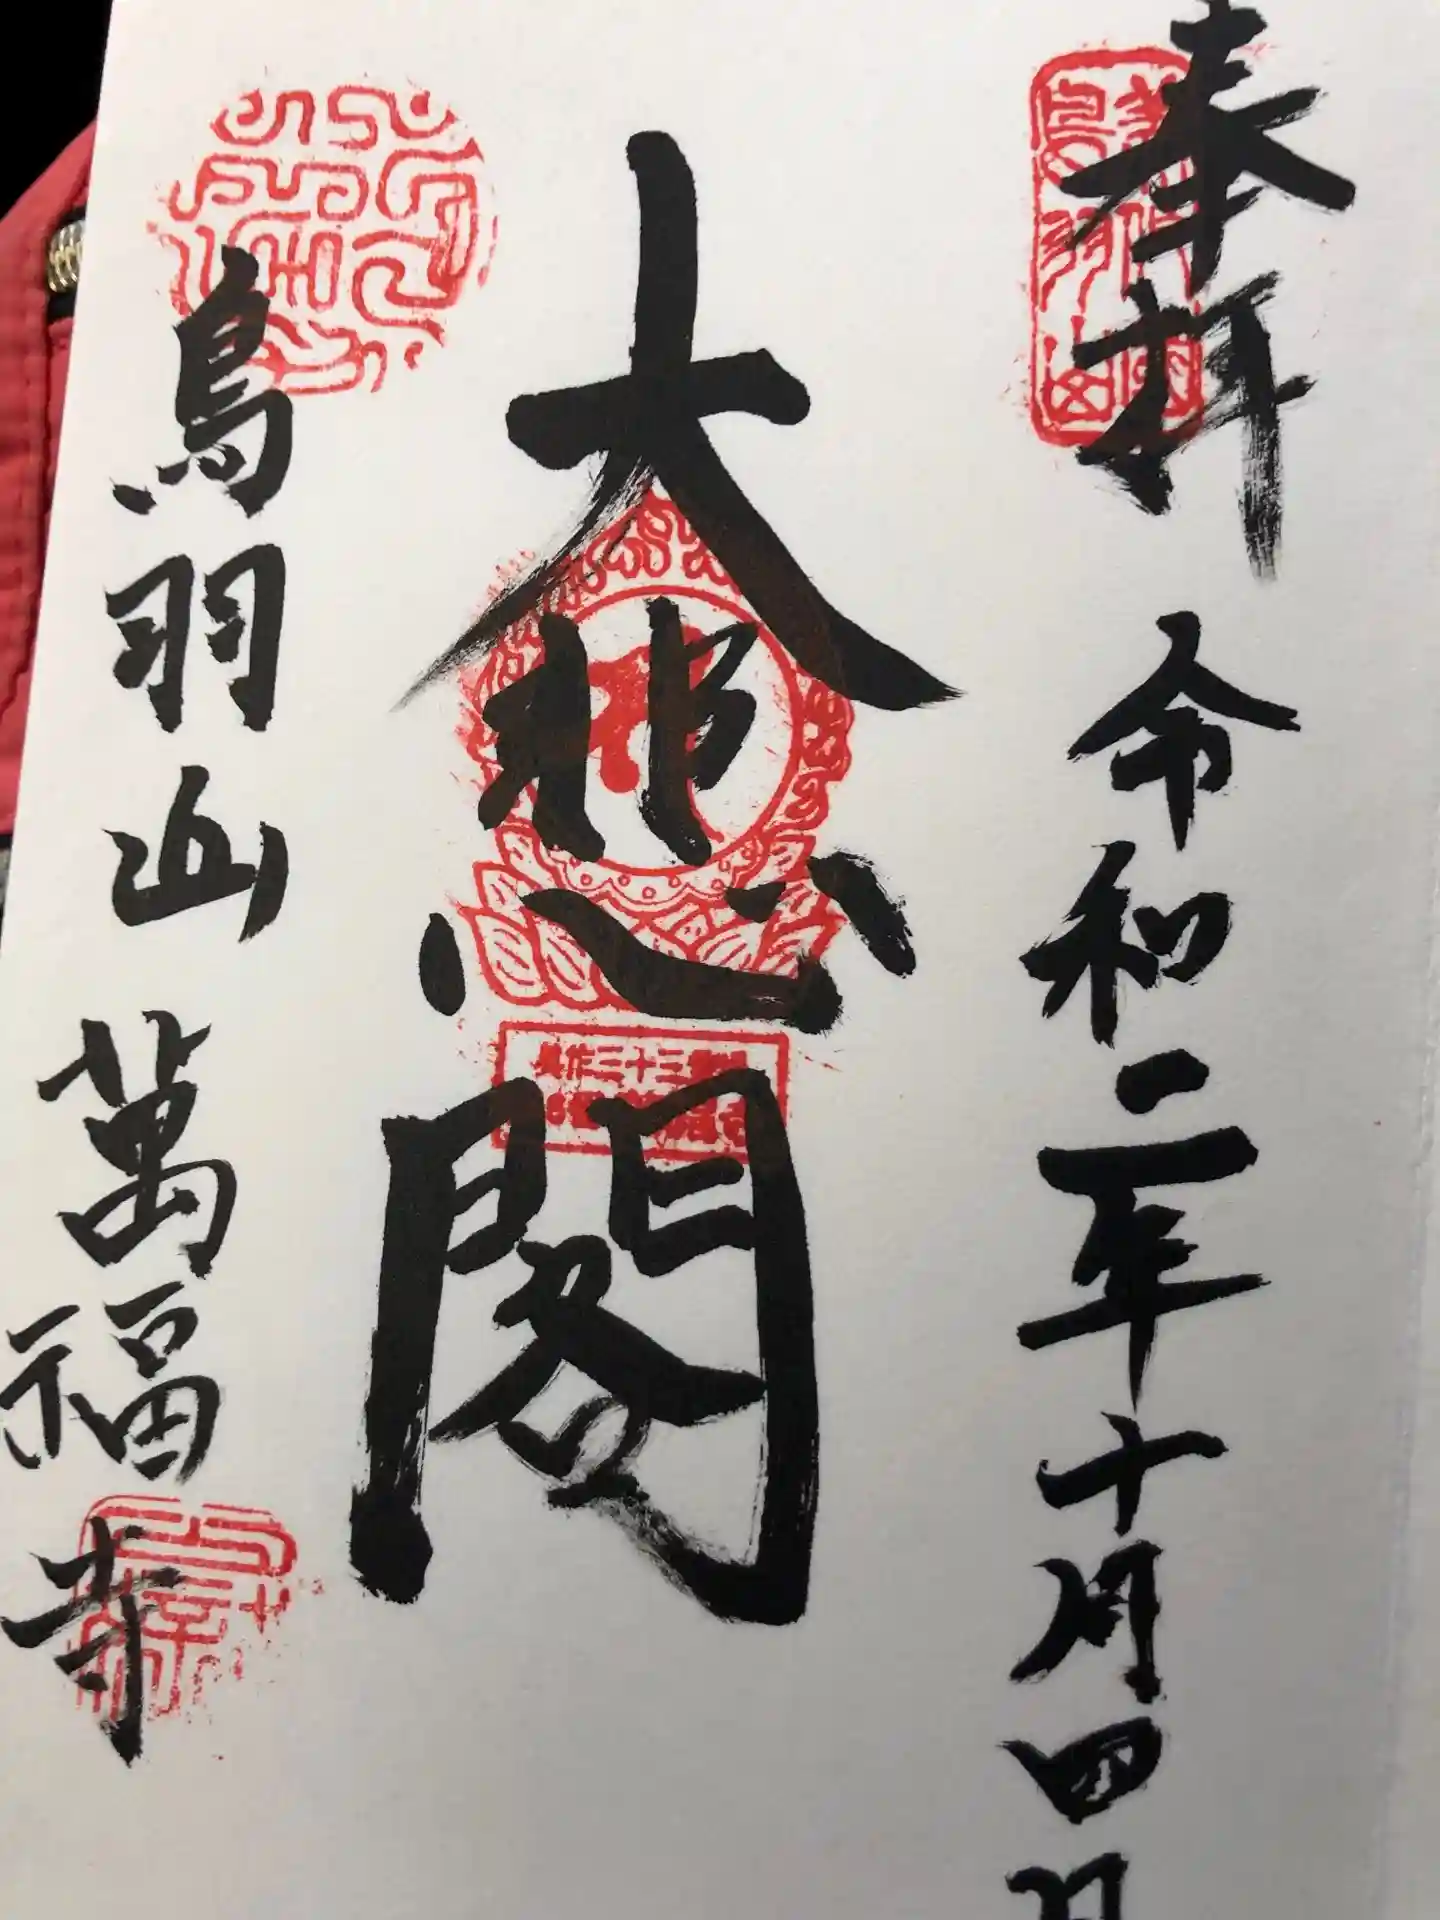 奉拝 令和二年十月四日
大悲閣
鳥羽山 萬福寺